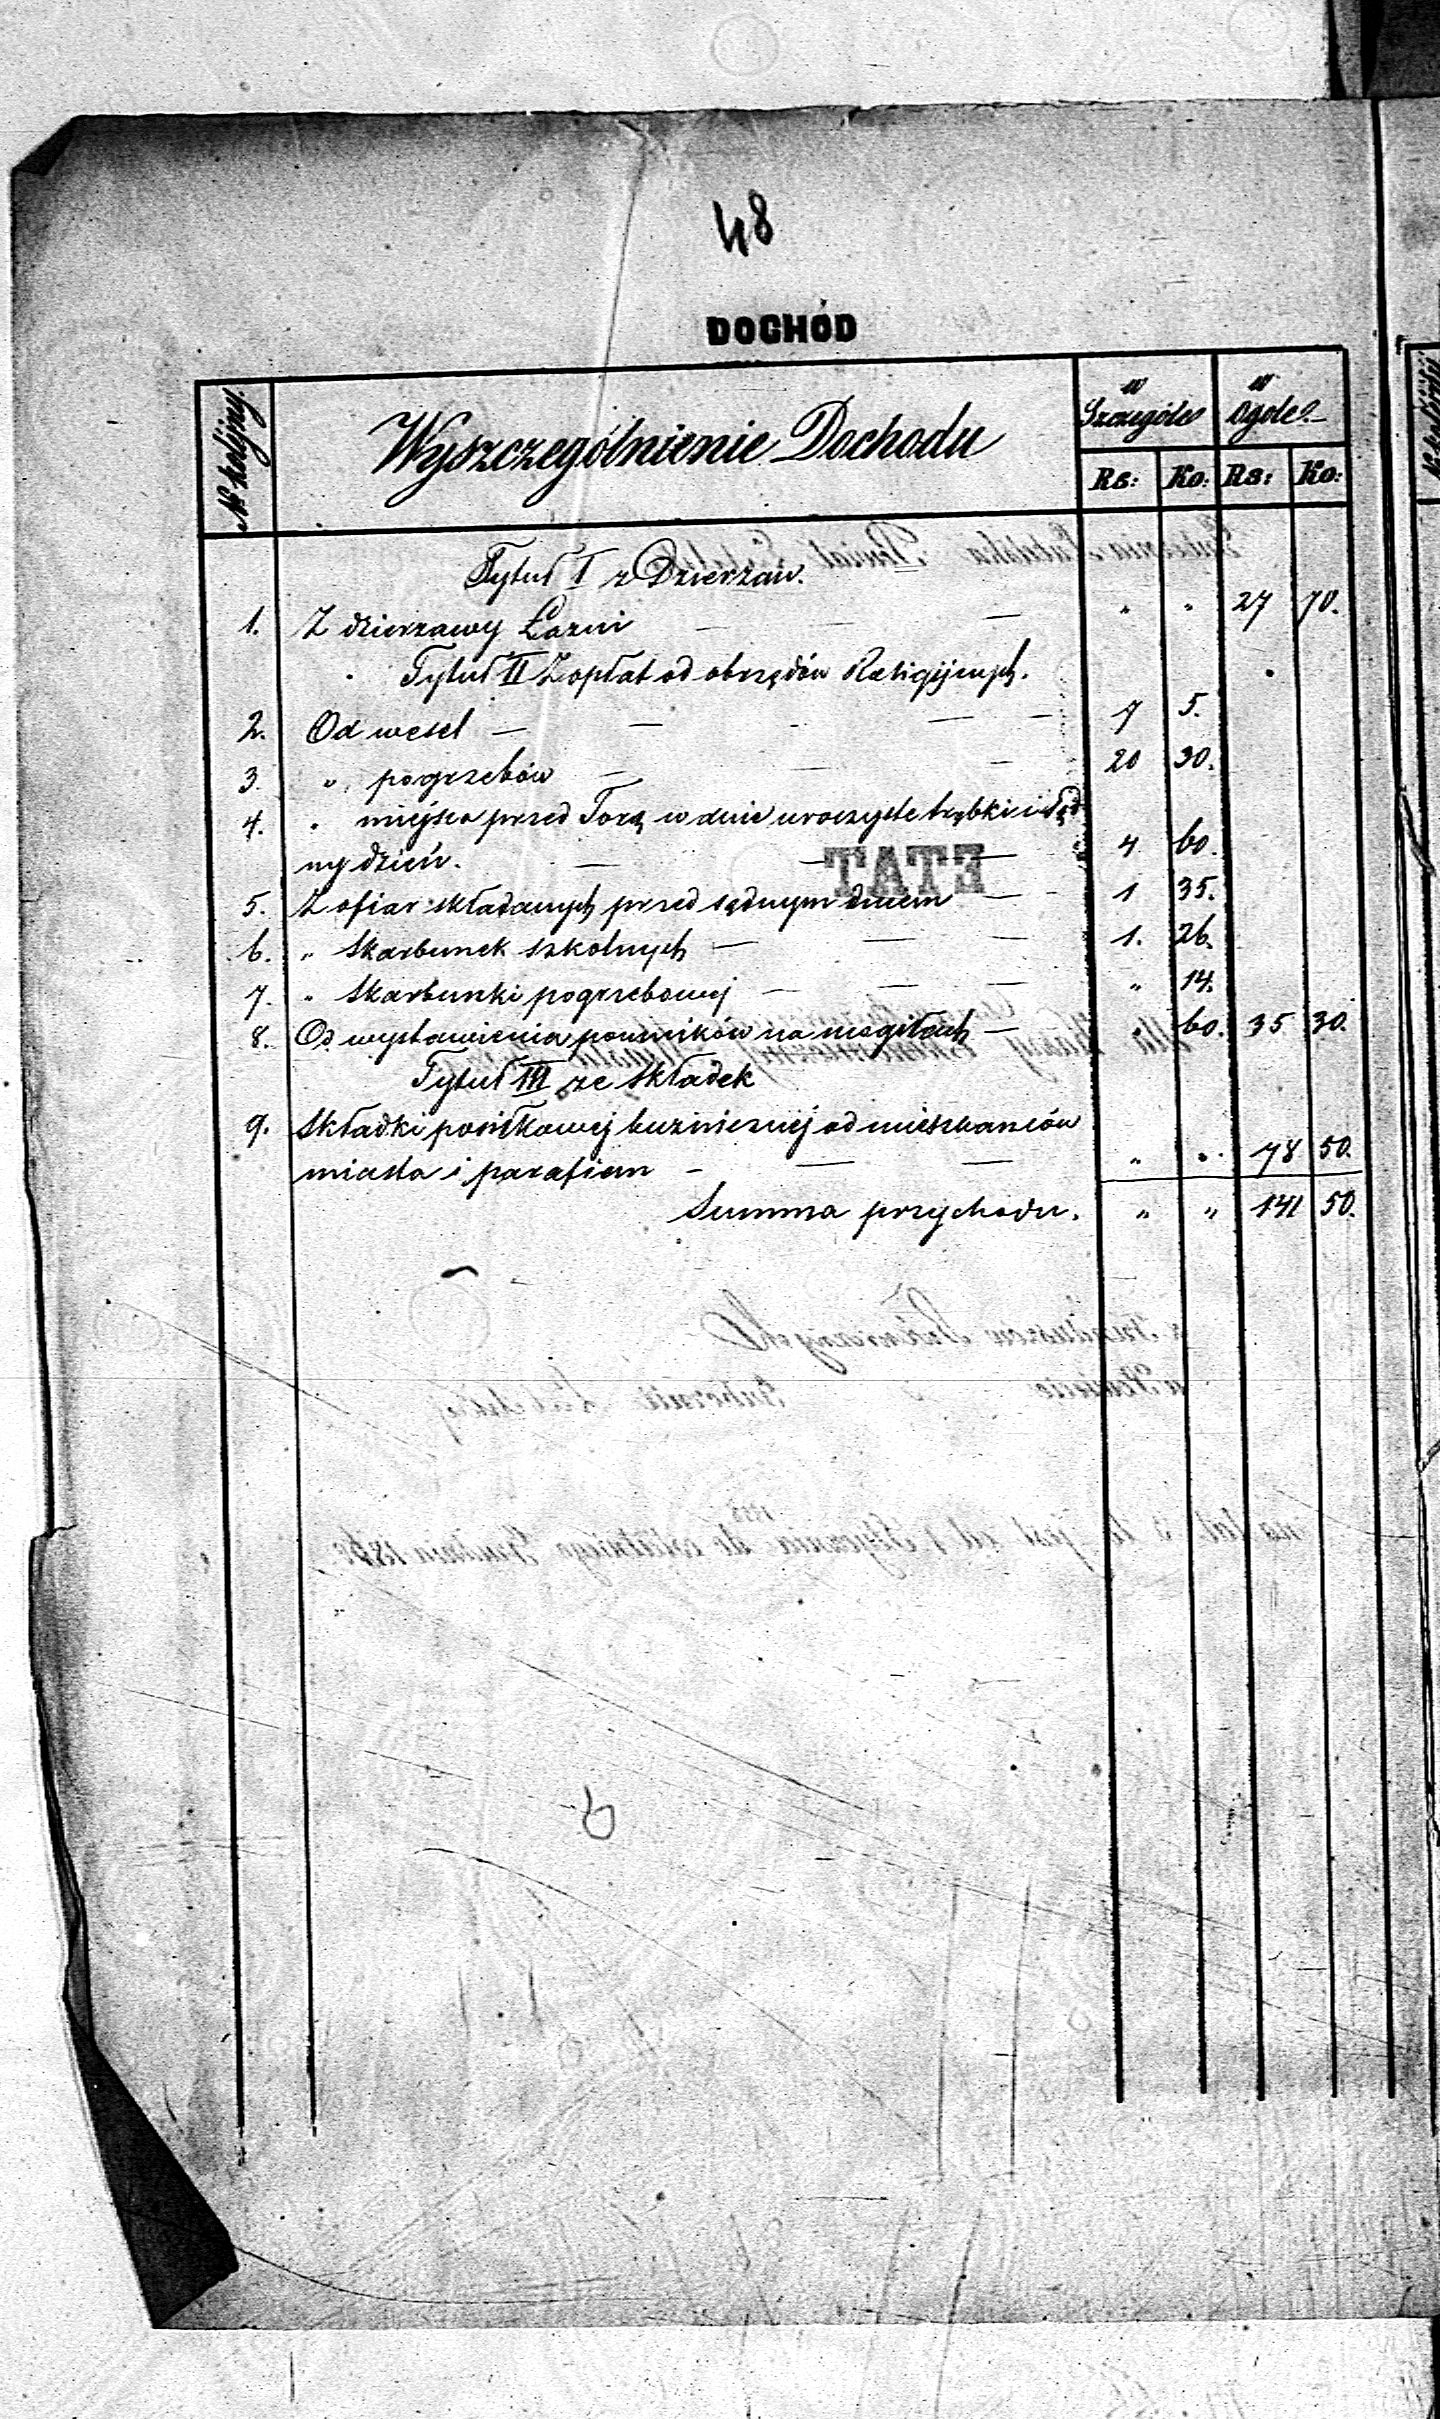 48
DOCHÓD
№ kolejny.
Wyszczególnienie Dochodu
w Szczególe
w Ogóle
Rs: Ko: Rs: Ko:
Tytuł I z Dzierżaw.
1. Z dzierzawy Łazni — — — " " 27 70.
Tytuł II Z opłat od obrzędów Religijnych.
2. Od wesel — — — — 7 5.
3. " pogrzebów — — — 20 30.
4. " miejsca przed Torą w dnie uroczyste trąbki i sąd
ny dzień. — — — 4 60.
5. Z ofiar składanych przed sądnym dniem — 1 35.
6. " Skarbunek szkolnych — — — 1. 26.
7. " Skarbunki pogrzebowej — — — " 14.
8. Od wystawienia pomników na mogiłach — " 60. 35 30.
Tytuł III ze składek
9. Składki posiłkowej bużnicznej od mieszkańców
miasta i parafiem — — — " " 78 50.
Summa przychodu. " " 141 50.
ETAT